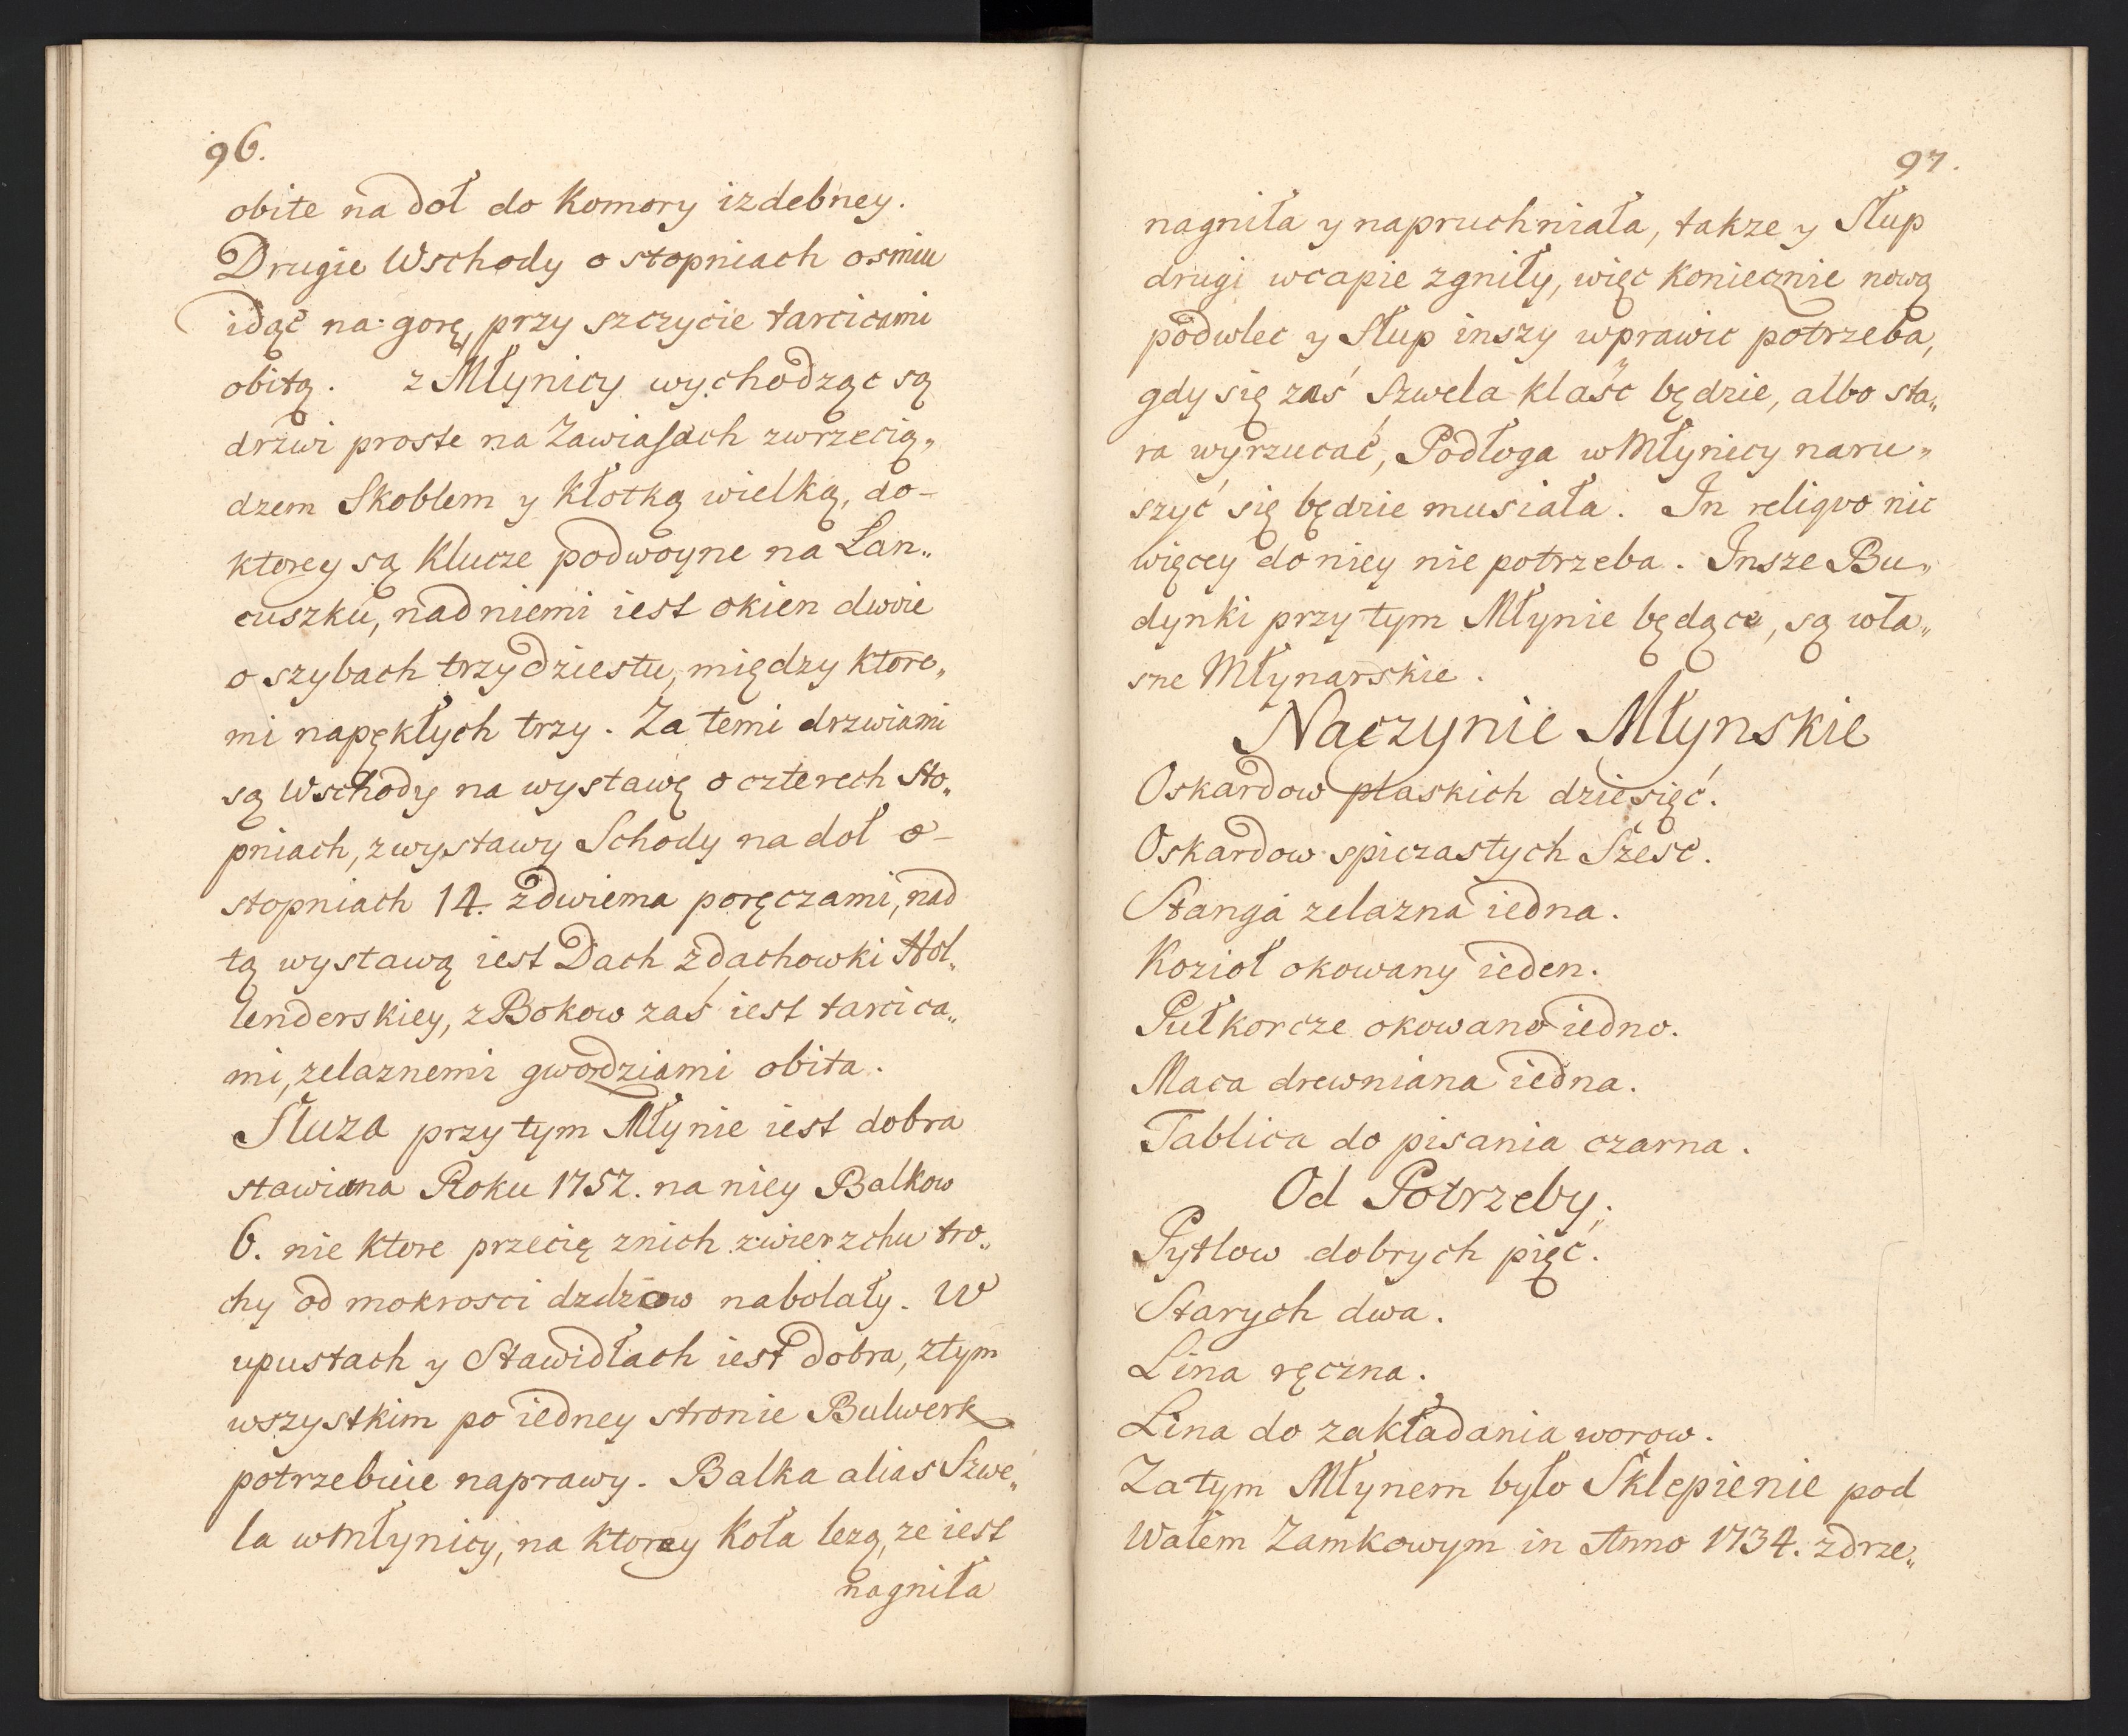 96.
obite na doł do Komory izdebney.
Drugie Wschody o stopniach osmiu
idąc na gorę, przy szczycie tarcicami
obitą. z Młynicy wychodząc są
drzwi proste na Zawiasach zwrzecią„
dzem Skoblem y Kłotką wielką, do-
ktorey są Klucze podwoyne na Łan„
cuszku, nad niemi iest okien dwoie
o szybach trzydziestu, między ktore„
mi napękłych trzy. Za temi drzwiami
są Wschody na wystawę o czterech Sto„
pniach, z wystawy Schody na doł o-
stopniach 14. z dwiema poręczami, nad
tą wystawą iest Dach z dachowki Hol„
lenderskiey, z Bokow zaś iest tarcica„
mi, zelaznemi gwoździami obita.
Sluza przy tym Młynie iest dobra
stawiana Roku 1752. na niey Balkow
6. nie ktore przecię znich zwierzchu tro„
chy od mokrosci dzdzow nabolały. W
upustach y Stawidłach iest dobra, ztym
wszystkim po iedney stronie Bulwerk
potrzebuie naprawy. Balka alias Szwe„
la w Młynicy, na ktorey Koła lezą, ze iest
nagniła
97.
nagniła y napruchniała, takze y Słup
drugi w capie zgniły, więc Koniecznie nową
podwlec y Słup inszy wprawic potrzeba,
gdy się zaś Szwela klaść będzie, albo sta„
ra wyrzucać, Podłoga w Młynicy naru„
szyć się będzie musiała. In reliqvo nic
więcey do niey nie potrzeba. Insze Bu„
dynki przy tym Młynie będące, są wła„
sne Młynarskie.
Naczynie Młynskie
Oskardow płaskich dziesięć.
Oskardow spiczastych Szesc.
Stanga zelazna iedna.
Kozioł okowany ieden.
Pułkorcze okowano iedno.
Maca drewniana iedna.
Tablica do pisania czarna.
Od Potrzeby.
Pytlow dobrych pięć.
Starych dwa.
Lina ręczna.
Lina do zakładania worow.
Za tym Młynem było Sklepienie pod
Wałem Zamkowym in Anno 1734. zdrze„